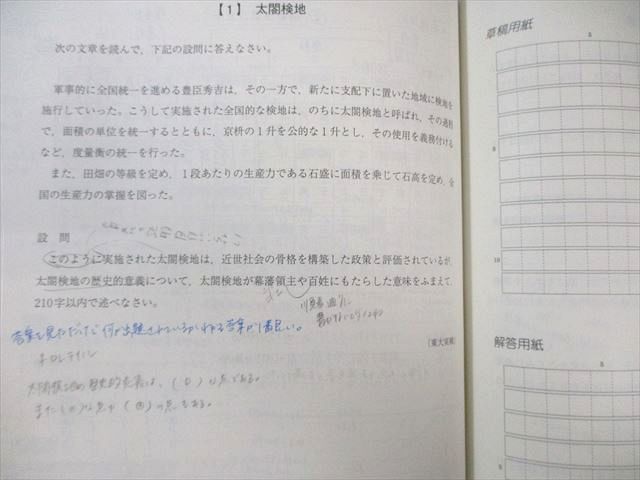 【1】 太閤検地
次の文章を読んで、下記の設問に答えなさい。
軍事的に全国統一を進める豊臣秀吉は、その一方で、新たに支配下に置いた地域に検地を
施行していった。こうして実施された全国的な検地は、のちに太閤検地と呼ばれ、その過程
で、面積の単位を統一するとともに、京枡の1升を公的な1升とし、その使用を義務付ける
など、度量衡の統一を行った。
また、田畑の等級を定め、1段あたりの生産力である石盛に面積を乗じて石高を定め、全
国の生産力の掌握を図った。
設 問
このように実施された太閤検地は、近世社会の骨格を構築した政策と評価されているが、
太閤検地の歴史的意義について、太閤検地が幕藩領主や百姓にもたらした意味をふまえて、
210字以内で述べなさい。
答案を見ただけで何が出題されているかわかる答案が1番良い。
太閤検地の歴史的意義は、( ① )な点である。
また( )な点や( )の点もある。
草稿用紙
5
10
解答用紙
5
5